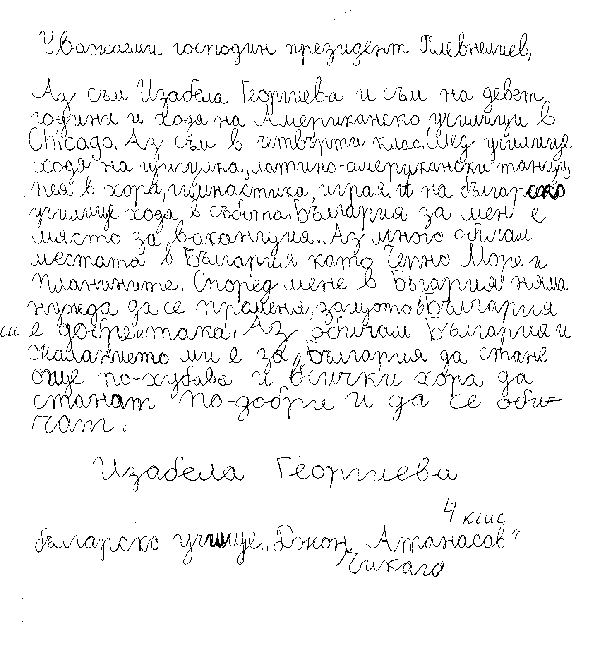 Уважаеми господин президент Плевнелиев,
Аз съм Изабела Георгиева и съм на девет
години и ходя на Американско училище в
Chicago. Аз съм в четвърти клас. След училище
ходя на цигулка, латино-американски танци,
пея в хора, гимнастика, играя и на българско
училище ходя в събота. България за мен е
място за ваканция. Аз много обичам
местата в България като Черно Море и
Планините. Според мене в България няма
нужда да се променя, защото България
си е добре така. Аз обичам България и
желанието ми е за България да стане
още по-хубава и всички хора да
станат по-добри и да се оби-
чат.
Изабела Георгиева
4 клас
Българско училище „Джон Атанасов"
Чикаго